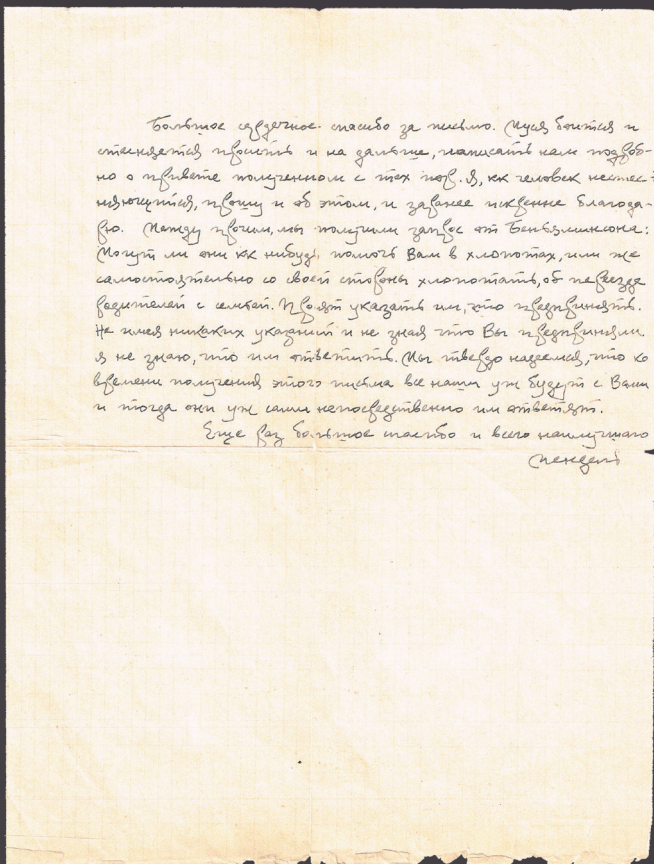 Большое сердечное спасибо за письмо. Муся боится и
стесняется просить и на дальше, написать нам подроб-
но о привете полученном с тех пор. Я, кк человек нестес-
няющийся, прошу и об этом, и заранее искренне благода-
рю. Между прочим, мы получили запрос от Беньяминсона:
Могут ли они кк нибудь помочь Вам в хлопотах, или же
самостоятельно со своей стороны хлопотать, об переезде
родителей с семьей. Просят указать им, что предпринять.
Не имея никаких указаний и не зная что Вы предприняли
я не знаю, что им ответить. Мы твердо надеемся, что ко
времени получения этого письма все наши уж будут с Вами
и тогда они уж сами непосредственно им ответят.
Еще раз большое спасибо и всего наилучшего
Мендель